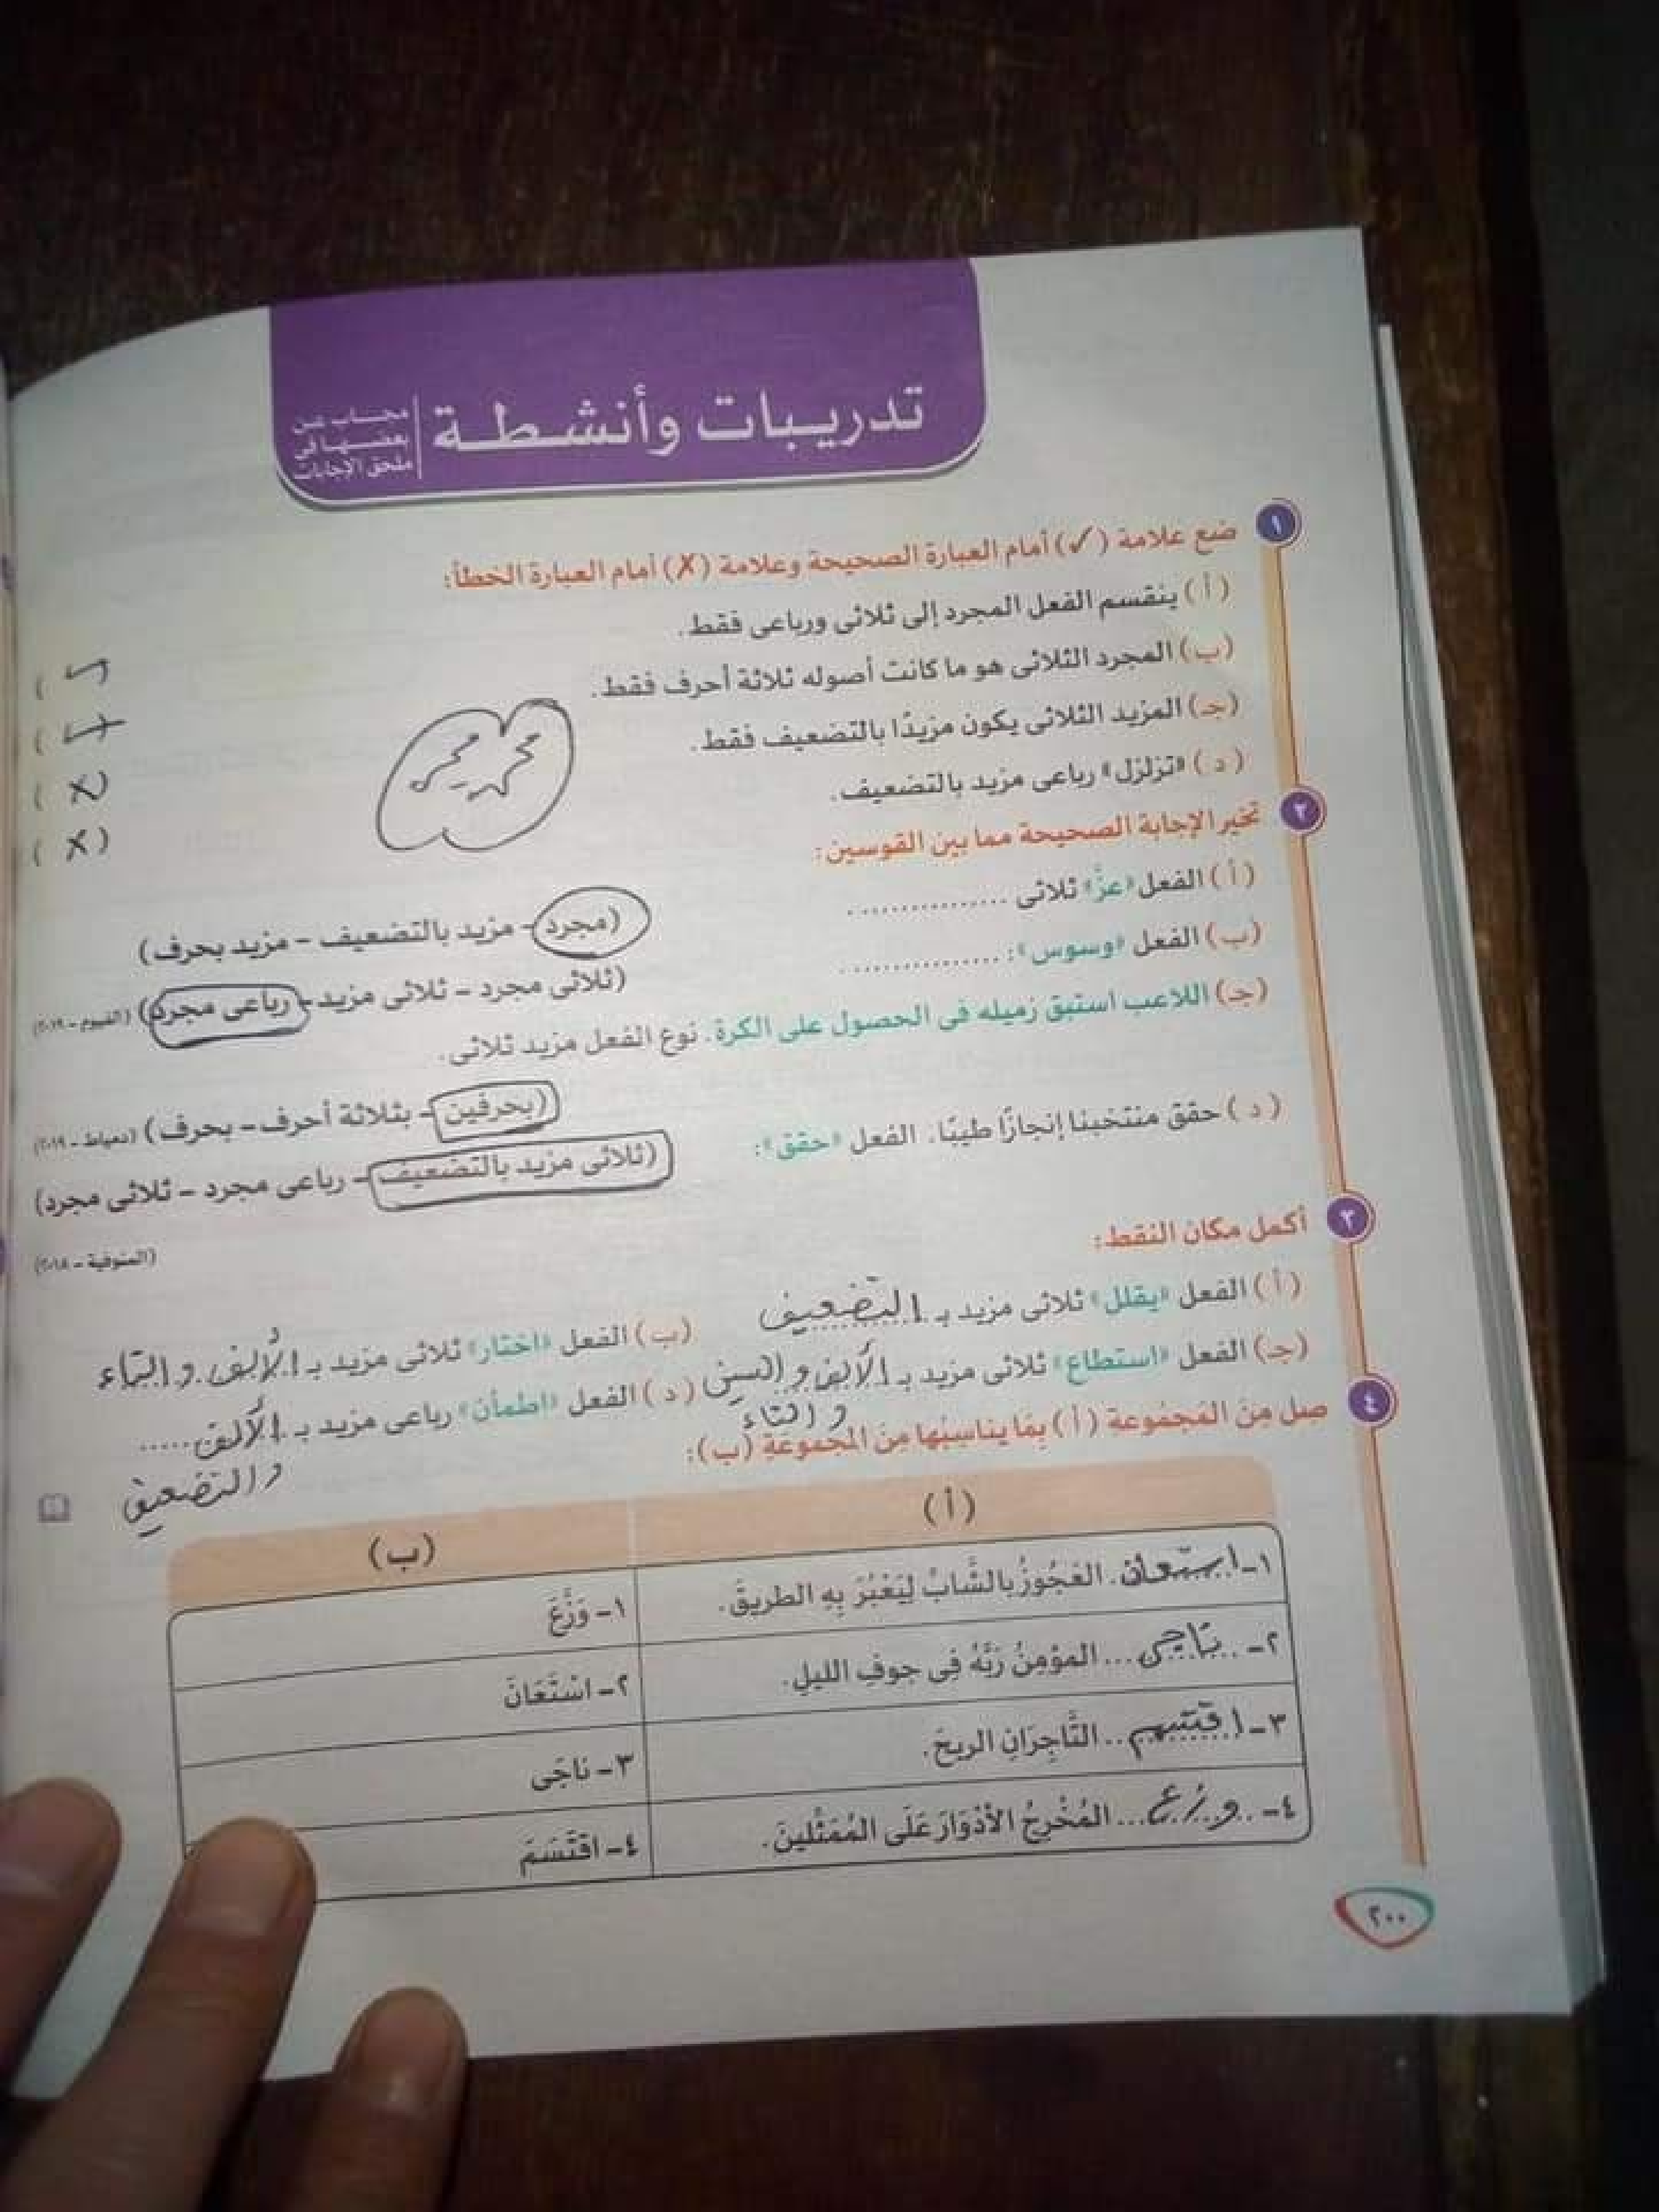 تدريبات وأنشطة
مجاب عن
بعضها في
ملحق الإجابات
١ ضع علامة (✓) أمام العبارة الصحيحة وعلامة (✗) أمام العبارة الخطأ:
(أ) ينقسم الفعل المجرد إلى ثلاثى ورباعى فقط. (✓)
(ب) المجرد الثلاثى هو ما كانت أصوله ثلاثة أحرف فقط. (✓)
(جـ) المزيد الثلاثى يكون مزيدًا بالتضعيف فقط. (✗)
(د) «تزلزل» رباعى مزيد بالتضعيف. (✗)
٢ تخير الإجابة الصحيحة مما بين القوسين:
(أ) الفعل «عزَّ» ثلاثى ................ (مجرد - مزيد بالتضعيف - مزيد بحرف)
(ب) الفعل «وسوس»: ................ (ثلاثى مجرد - ثلاثى مزيد - رباعى مجرد) (الفيوم - ٢٠١٩)
(جـ) اللاعب استبق زميله فى الحصول على الكرة. نوع الفعل مزيد ثلاثى.
(بحرفين - بثلاثة أحرف - بحرف) (دمياط - ٢٠١٩)
(د) حقق منتخبنا إنجازًا طيبًا. الفعل «حقق»: (ثلاثى مزيد بالتضعيف - رباعى مجرد - ثلاثى مجرد)
(المنوفية - ٢٠١٨)
٣ أكمل مكان النقط:
(أ) الفعل «يقلل» ثلاثى مزيد بـ التضعيف (ب) الفعل «اختار» ثلاثى مزيد بـ الألف والتاء
(جـ) الفعل «استطاع» ثلاثى مزيد بـ الألف والسين والتاء (د) الفعل «اطمأن» رباعى مزيد بـ الألف .....
والتضعيف
٤ صل من المجموعة (أ) بما يناسبُها مِنَ المجموعَةِ (ب):
(أ) (ب)
١- استعان. العَجُوزُ بالشَّابِّ لِيَعْبُرَ بِهِ الطريقَ. ١- وَزَّعَ
٢- ناجى... المؤمِنُ رَبَّهُ فِى جوفِ الليلِ. ٢- اسْتَعَانَ
٣- اقتسم.. التَّاجِرَانِ الربحَ. ٣- ناجَى
٤- وزع... المُخْرِجُ الأدْوَارَ عَلَى المُمَثِّلينَ. ٤- اقْتَسَمَ
٢٠٠